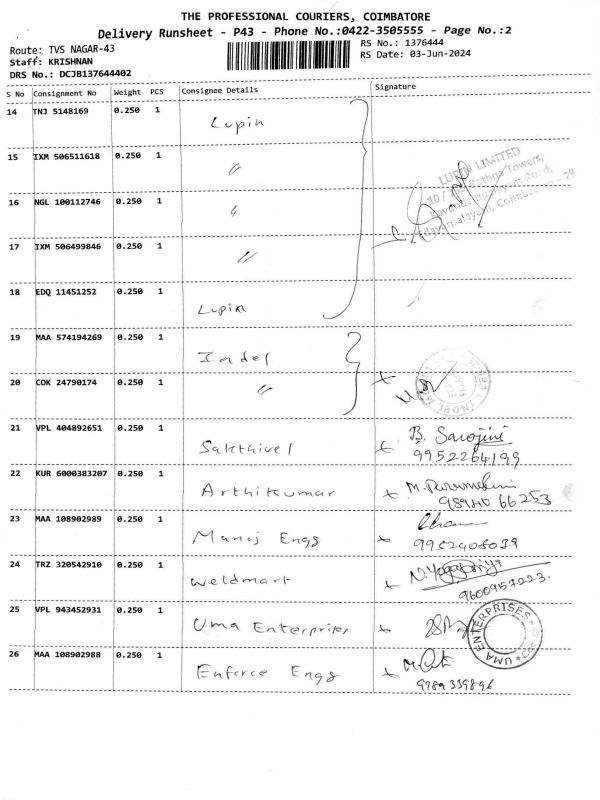 THE PROFESSIONAL COURIERS, COIMBATORE
Delivery Runsheet - P43 - Phone No.:0422-3505555 - Page No.:2
Route: TVS NAGAR-43
RS No.: 1376444
Staff: KRISHNAN
RS Date: 03-Jun-2024
DRS No.: DCJB137644402
S No Consignment No Weight PCS Consignee Details Signature
14 TNJ 5148169 0.250 1 Lupin
15 IXM 506511618 0.250 1 "
LUPIN LIMITED
Rathna Towers,
16 NGL 100112746 0.250 1 "
17 IXM 506499846 0.250 1 "
18 EDQ 11451252 0.250 1 Lupin
19 MAA 574194269 0.250 1 Indel
20 COK 24790174 0.250 1 "
21 VPL 404892651 0.250 1 Sakthivel B. Sarojini
9952264199
22 KUR 6000383207 0.250 1 Arthikumar
66253
23 MAA 108902989 0.250 1 Manoj Engs
9952408039
24 TRZ 320542910 0.250 1 Weldmart N. Yogapriya
9600957223.
25 VPL 943452931 0.250 1 Uma Enterprises
UMA ENTERPRISES
26 MAA 108902988 0.250 1 Enforce Engs
9789339896